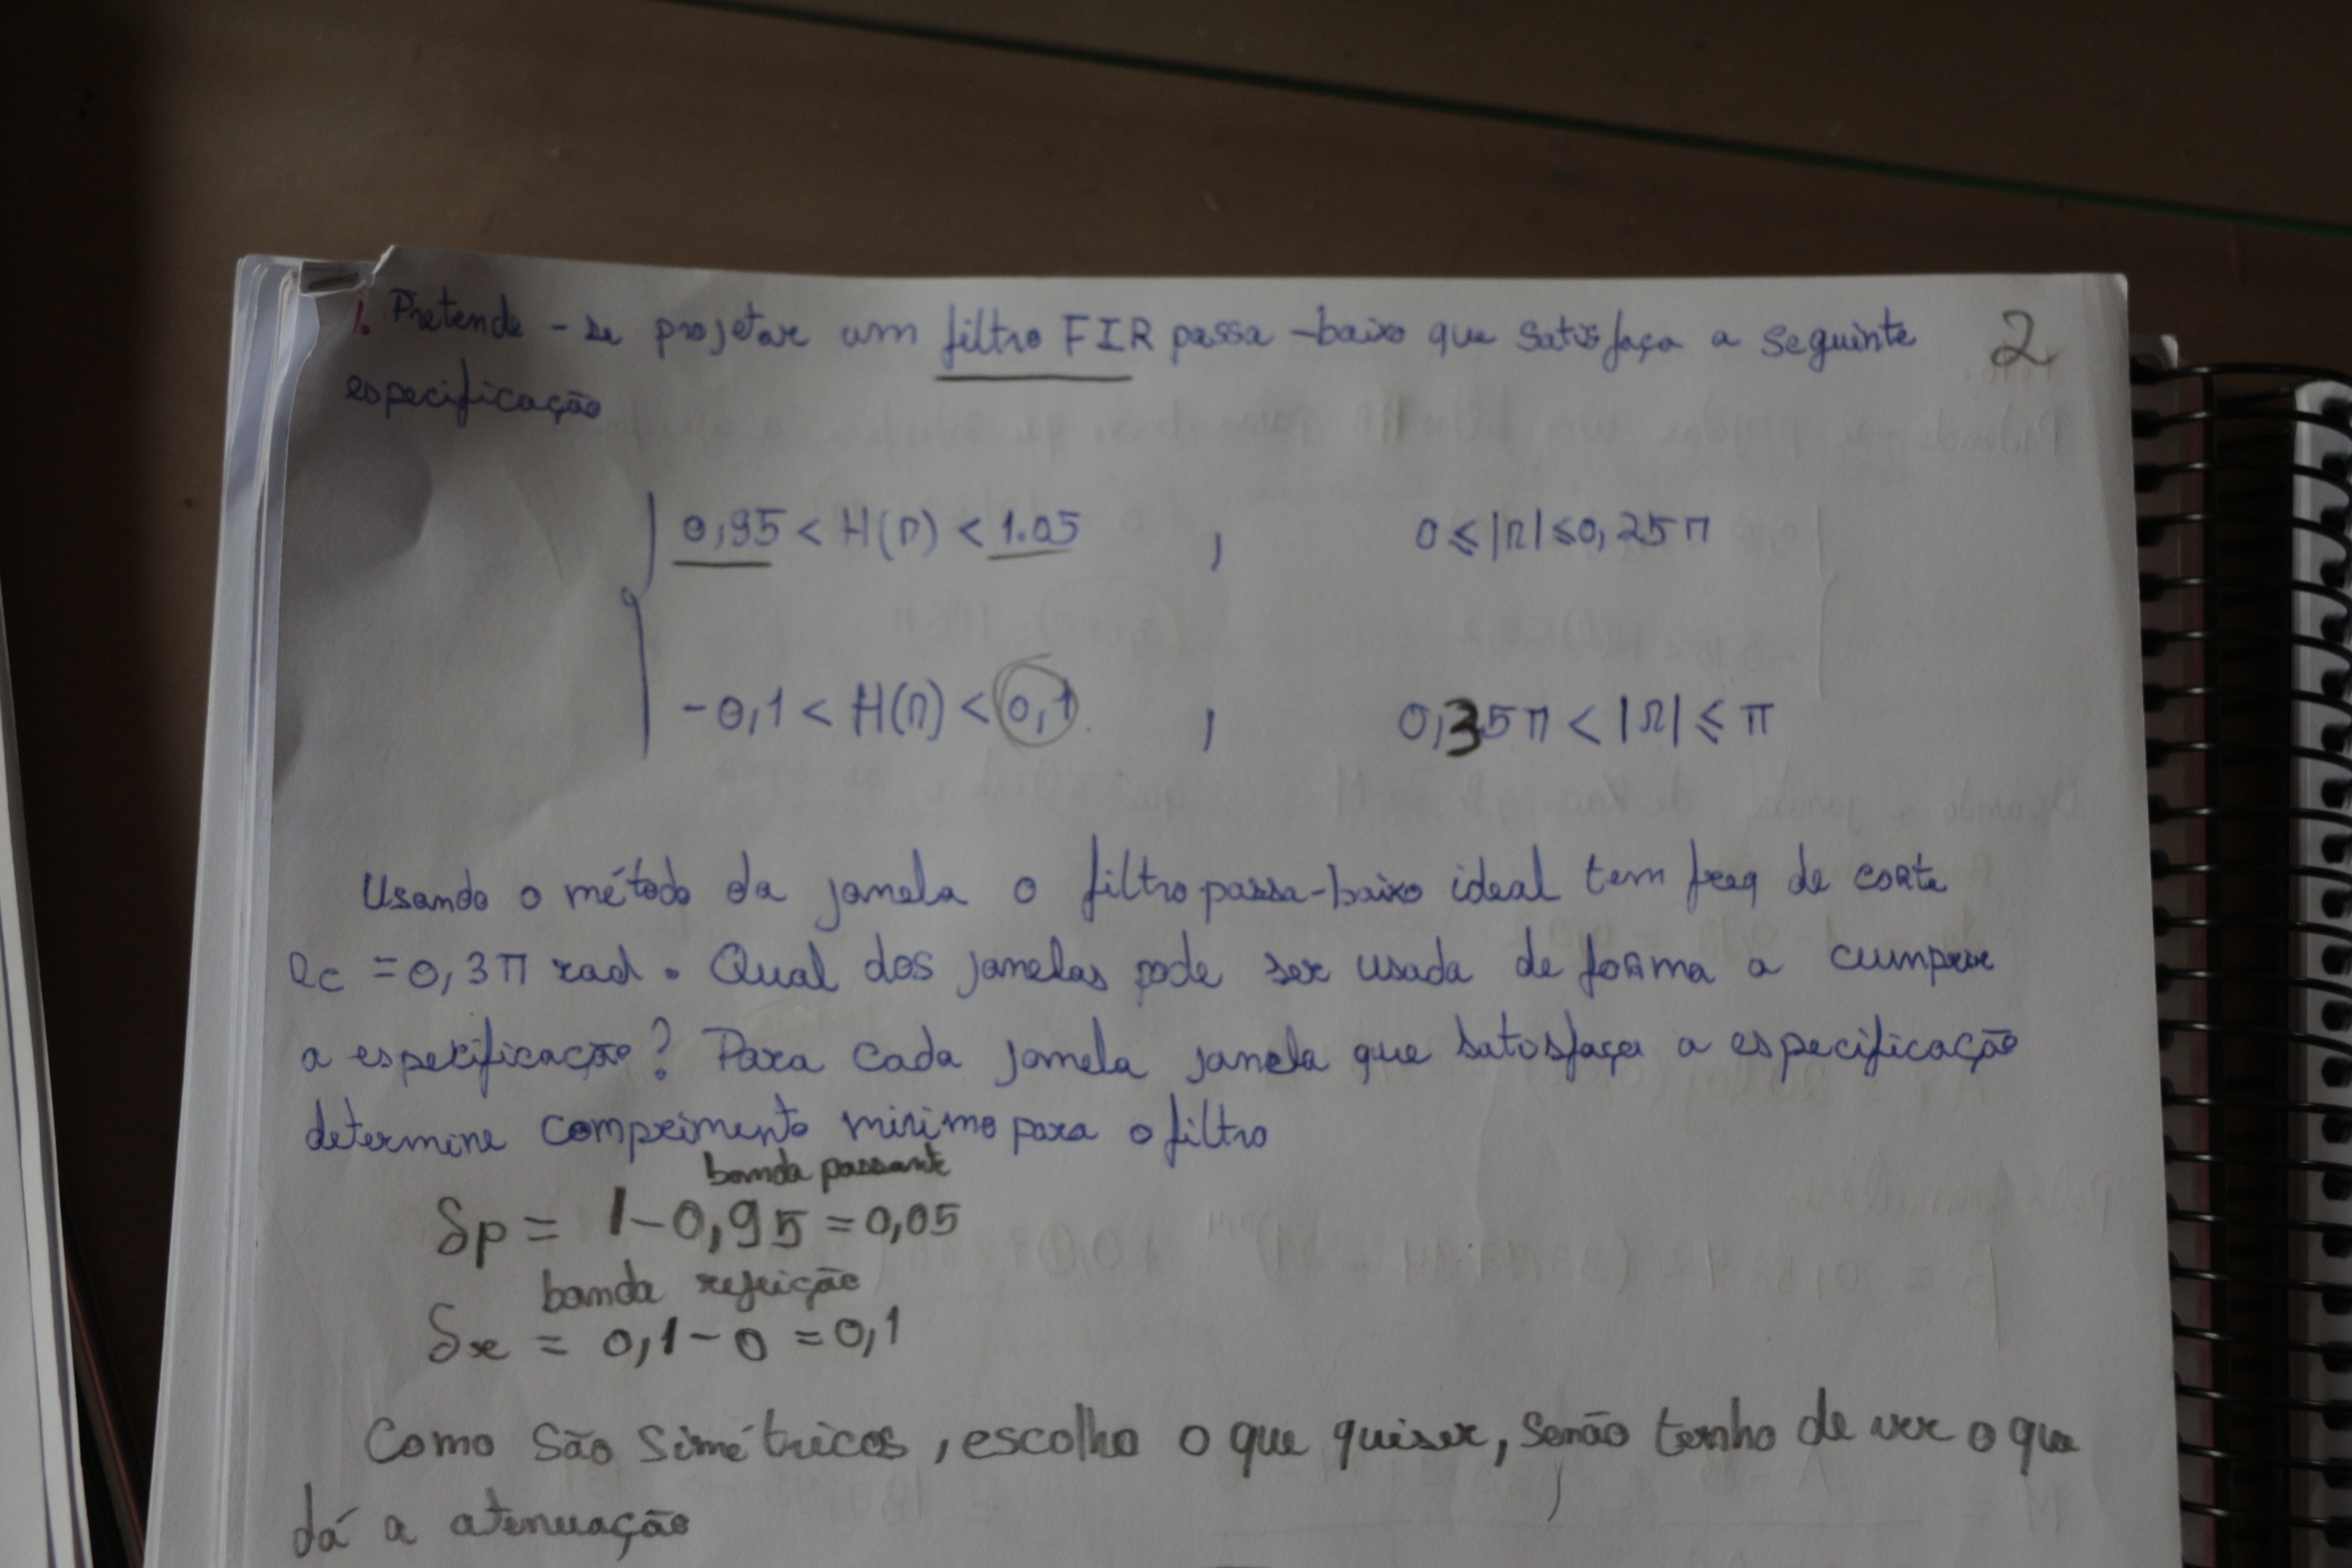 1. Pretende-se projetar um filtro FIR passa-baixo que satisfaça a seguinte
2
especificação
0,95 < H(Ω) < 1.05 , 0 ≤ |Ω| ≤ 0,25π
-0,1 < H(Ω) < 0,1 , 0,35π < |Ω| ≤ π
Usando o método da janela o filtro passa-baixo ideal tem freq de corte
Ωc = 0,3π rad. Qual dos janelas pode ser usada de forma a cumprir
a especificação? Para cada janela janela que satisfaça a especificação
determine comprimento minimo para o filtro
banda passante
δp = 1-0,95 = 0,05
banda rejeição
δr = 0,1-0 = 0,1
Como são simétricos, escolho o que quiser, senão tenho de ver o que
dá a atenuação